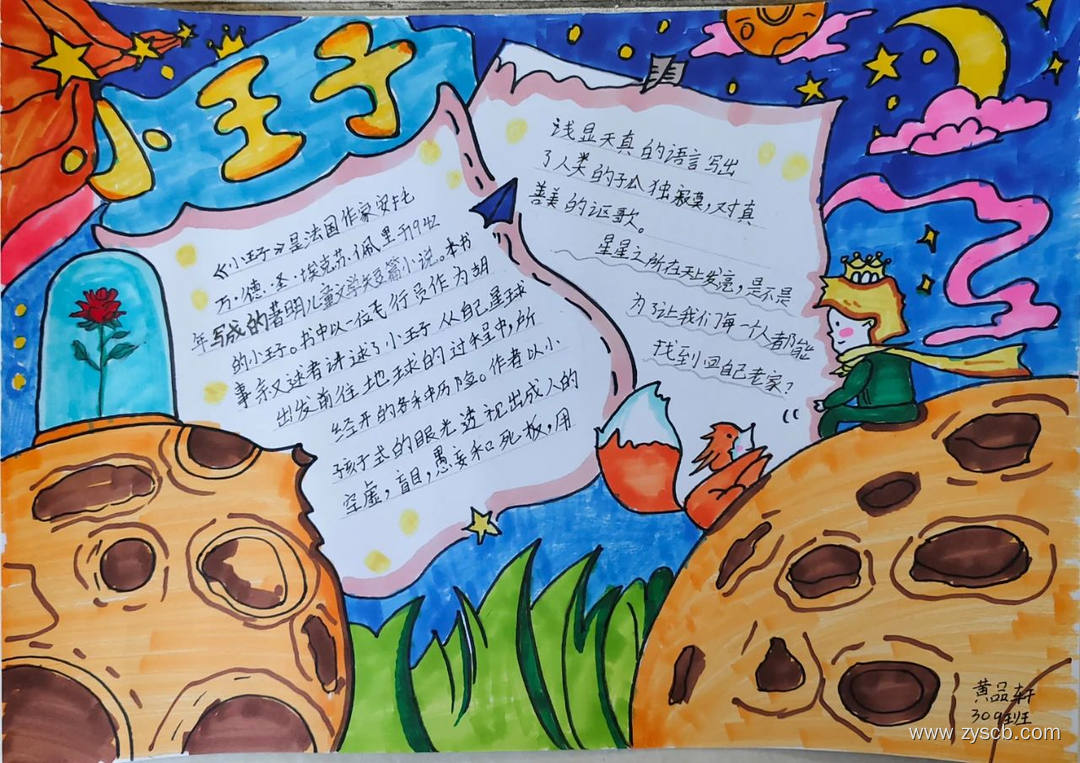 小王子
《小王子》是法国作家安托
万·德·圣·埃克苏·佩里于1942
年写成的著明儿童文学短篇小说。本书
的小王子。书中以一位飞行员作为胡
事亲叉述者讲述了小王子从自己星球
出发前往地球的过程中,所
经开的各种历险。作者以小
孩子式的眼光透视出成人的
空虚,盲目,愚妄和死板,用
浅显天真的语言写出
了人类的孤独寂寞,对真
善美的讴歌。
星星之所在天上发亮,是不是
为了让我们每一个人都能
找到回自己老家?
黄品轩
309班
www.zyscb.com